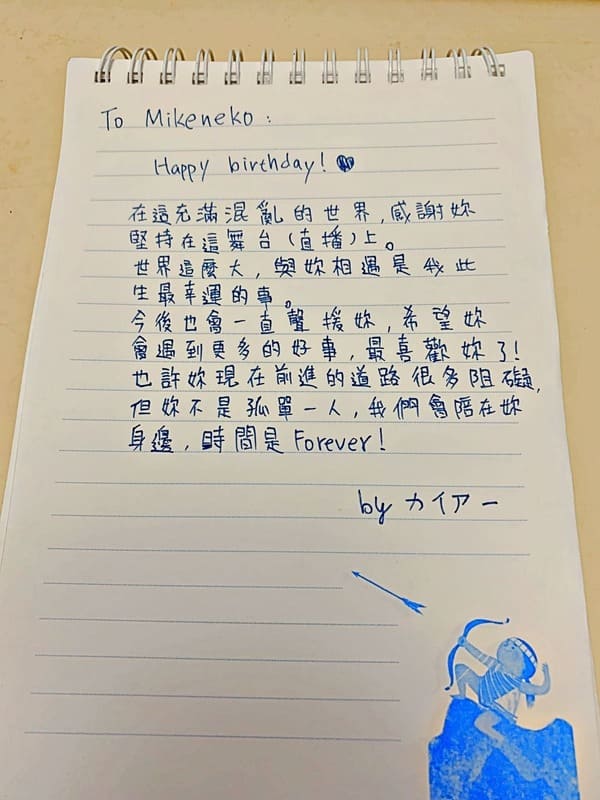 To Mikeneko :
Happy birthday! ♥
在這充滿混亂的世界,感謝妳
堅持在這舞台(直播)上。
世界這麼大,與妳相遇是我此
生最幸運的事。
今後也會一直聲援妳,希望妳
會遇到更多的好事,最喜歡妳了!
也許妳現在前進的道路很多阻礙,
但妳不是孤單一人,我們會陪在妳
身邊,時間是 Forever!
by カイアー